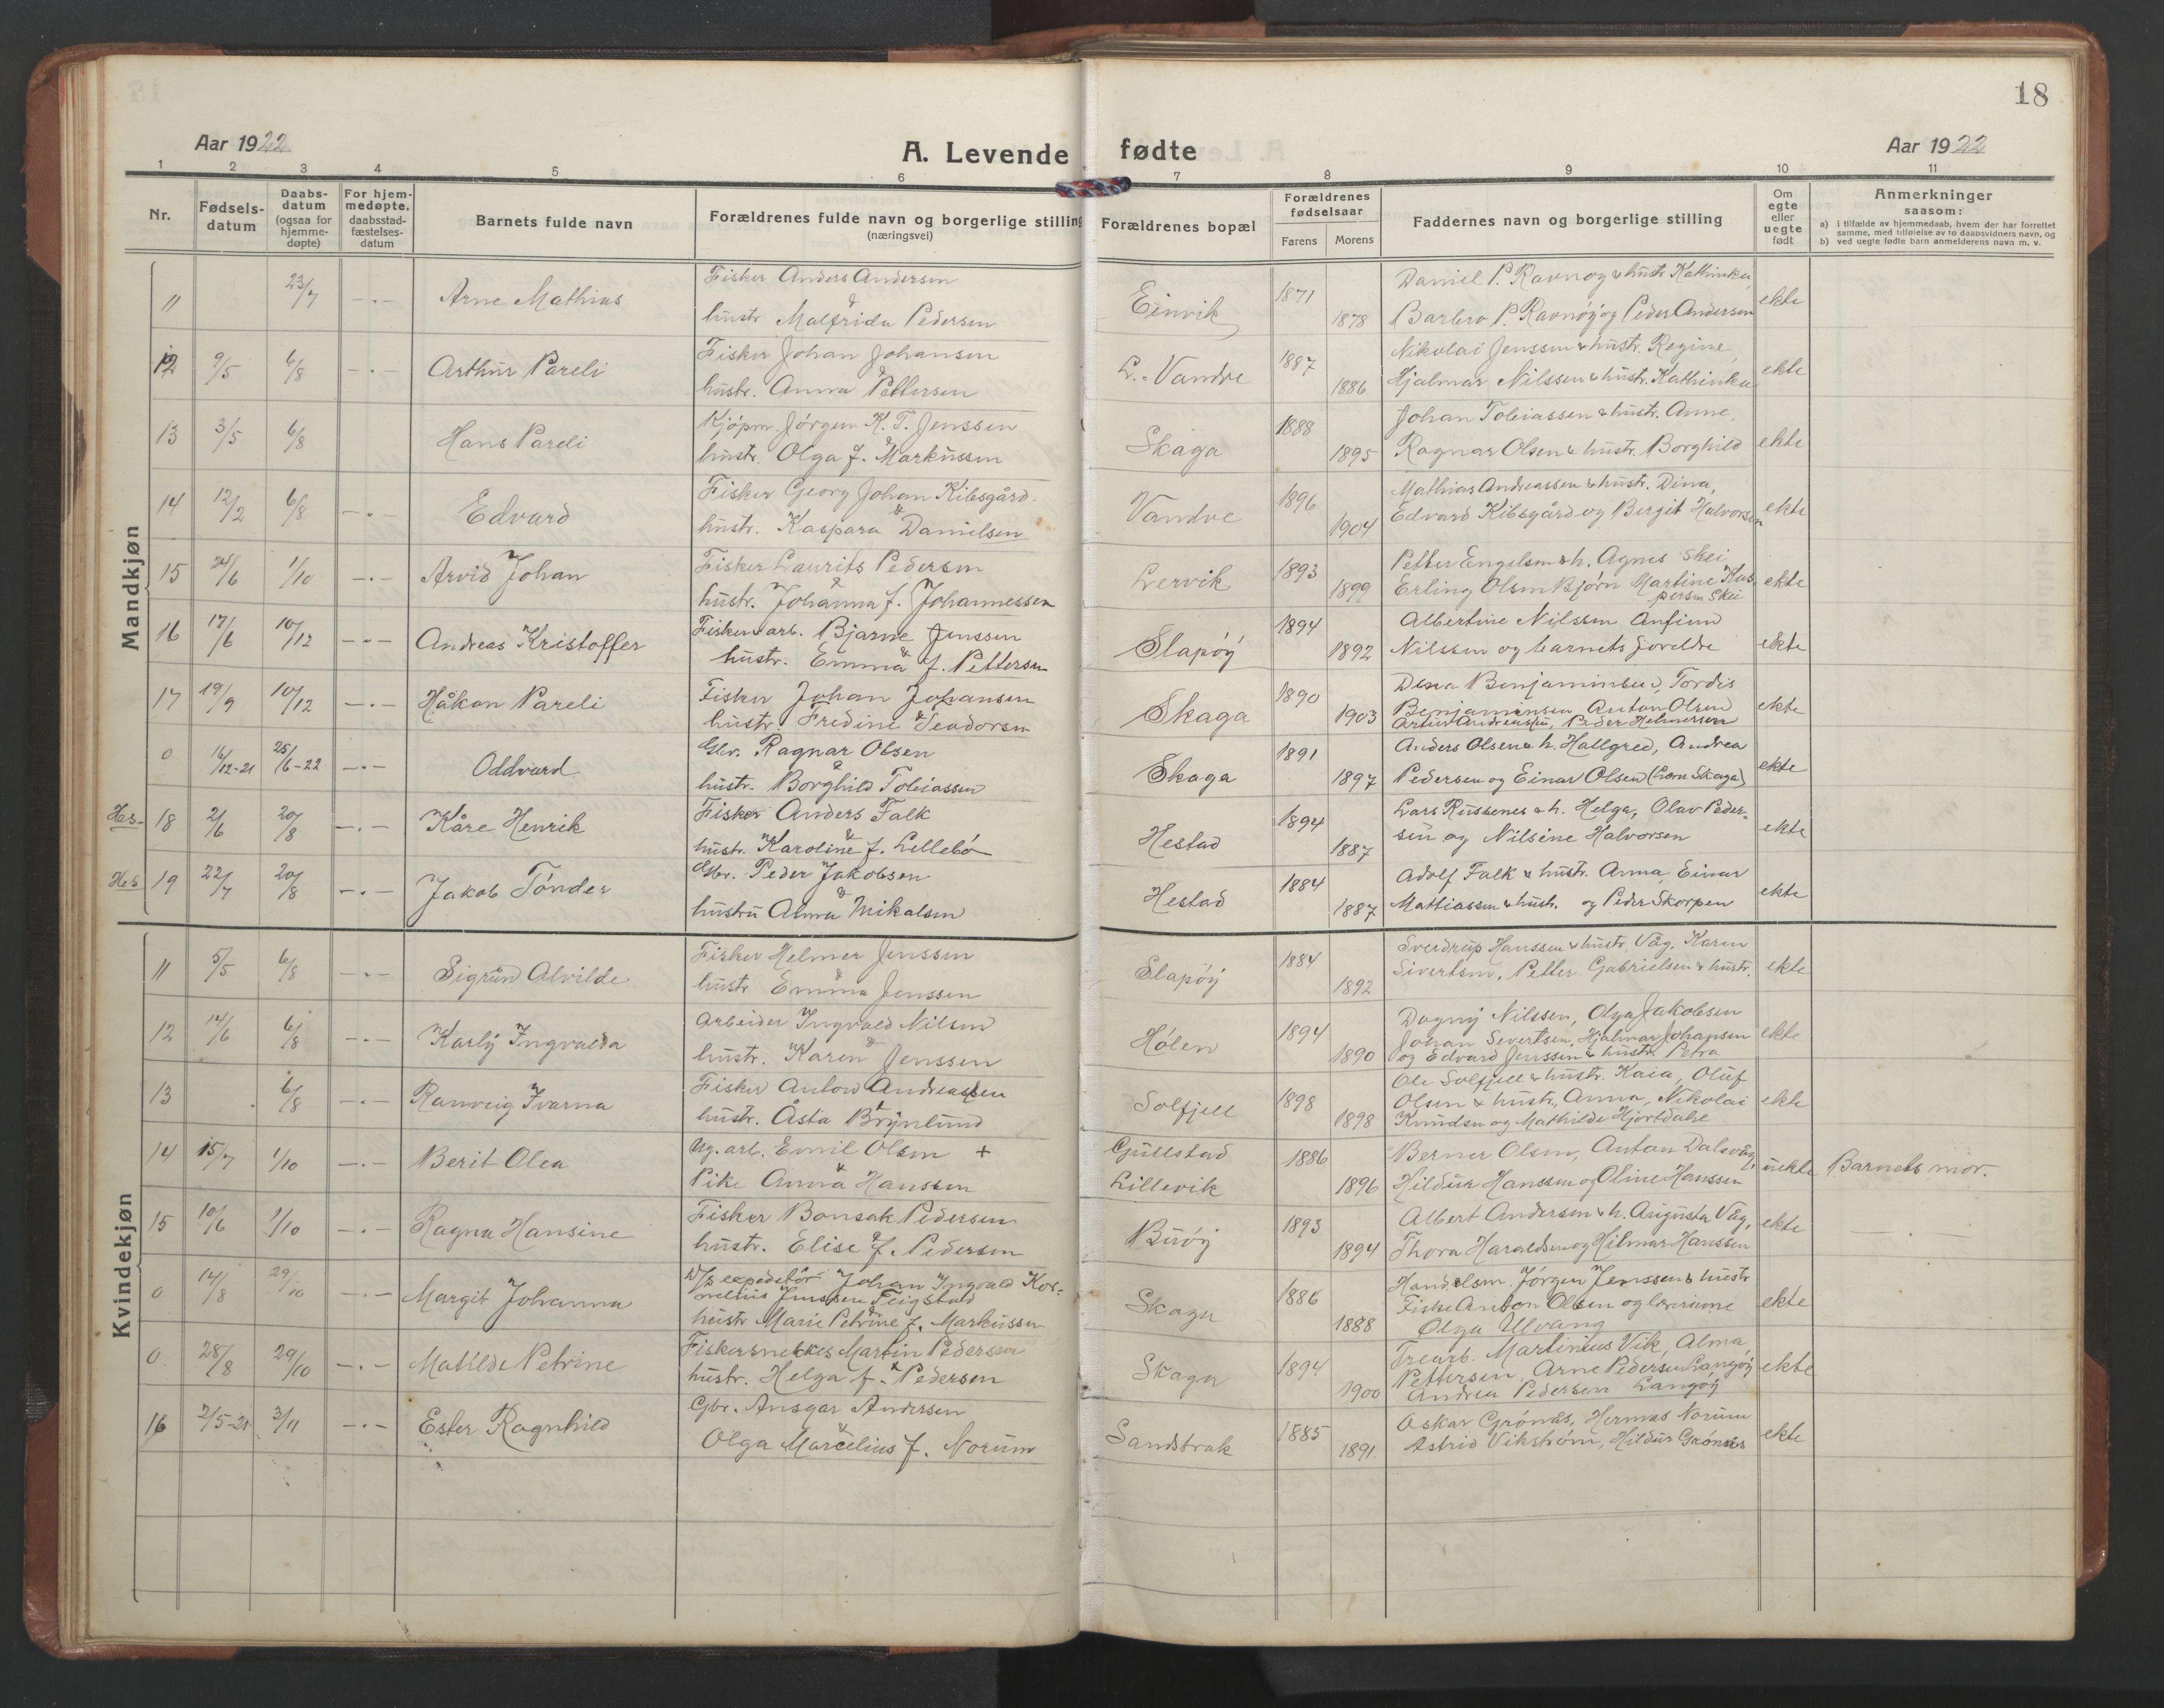 18
Aar 1922
A. Levende fødte
Aar 1922
1 2 3 4 5 6 7 8 9 10 11
Nr.
Fødsels-
datum
Daabs-
datum
(ogsaa for
hjemme-
døpte)
For hjem-
medøpte.
daabsstad-
fæstelses-
datum
Barnets fulde navn
Forældrenes fulde navn og borgerlige stilling
(næringsvei)
Forældrenes bopæl
Forældrenes
fødselsaar
Farens Morens
Faddernes navn og borgerlige stilling
Om
egte
eller
uegte
født
Anmerkninger
saasom:
a) i tilfælde av hjemmedaab, hvem der har forrettet
samme, med tilføielse av to daabsvidners navn, og
b) ved uegte fødte barn anmelderens navn m. v.
Mandkjøn
11 23/7 -"- Arne Mathias Fisker Anders Andersen Einvik 1871 Daniel P. Ravnøy & hustr Kathinka, ekte
& hustr Malfrida Pedersen 1878 Barbro P. Ravnøy og Peder Andersen
12 9/5 6/8 -"- Arthur Pareli Fisker Johan Johansen L.-Vandve 1887 Nikolai Jenssen & hustr. Regine, ekte
& hustr. Anna Pettersen 1886 Hjalmar Nilssen & hustr. Kathinka
13 3/5 6/8 Hans Pareli Kjøpm. Jørgen K. T. Jenssen Skaga 1888 Johan Tobiassen & hustr. Anne, ekte
& hustr. Olga f. Markussen 1895 Ragnar Olsen & hustr. Borghild
14 12/2 6/8 -"- Edvard Fisker Georg Johan Kibsgård Vandve 1896 Mathias Andreassen & hustr. Dina, ekte
& hustr. Kaspara Danielsen 1904 Edvard Kibsgård og Bergit Halvorsen
15 24/6 1/10 -"- Arvid Johan Fisker Laurits Pedersen Lervik 1893 Petter Engelsen & h. Agnes Skei ekte
& hustr. Johanna f. Johannessen 1899 Erling Olsen Bjørn Martine Kas
persen Skei
16 17/6 10/12 -"- Andreas Kristoffer Fisker & arb. Bjarne Jenssen Slapøy 1894 Albertine Nilssen Anfinn ekte
& hustr. Emma f. Pettersen 1892 Nilssen og barnets foreldre
17 19/9 10/12 -"- Håkon Pareli Fisker Johan Johansen Skaga 1890 Dina Benjaminsen, Tordis ekte
& hustr Fredine Teodorsen 1903 Benjaminsen, Anton Olsen
Artur Andreassen, Peder Helmersen
0 16/12-21 25/6-22 -"- Oddvard Glv. Ragnar Olsen Skaga 1891 Anders Olsen & h. Hallgred, Andrea ekte
& hustr. Borghild Tobiassen 1897 Pedersen og Einar Olsen (Lorn Skaga)
Hes. 18 2/6 20/8 -"- Kåre Henrik Fisker Anders Falk Hestad 1894 Lars Russenes & h. Helga, Olav Peder- ekte
& hustr. Karoline f. Lillebø 1887 sen og Nilsine Halvorsen
Hes 19 22/7 20/8 -"- Jakob Tønder Gbr. Peder Jakobsen Hestad 1884 Adolf Falk & hustr. Anna, Einar ekte
& hustru Alma Mikalsen 1887 Mattiassen & hustr. og Peder Skorpen
Kvindekjøn
11 5/5 6/8 -"- Sigrun Alvilde Fisker Helmer Jenssen Slapøy 1884 Sverdrup Hanssen & hustr. Våg, Karen ekte
& hustr Emma Jenssen 1892 Sivertsen, Petter Gabrielsen & hustr.
12 14/6 6/8 -"- Karly Ingvalda Arbeider Ingvald Nilsen Hølen 1894 Dagny Nilssen, Olga Jakobsen ekte
& hustr. Karen Jenssen 1890 Johan Severtsen, Hjalmar Johansen
og Edvard Jenssen & hustr. Petra
13 6/8 -"- Ranveig Ivarna Fisker Anton Andreassen Solfjell 1898 Ole Solfjell & hustr. Kaia, Oluf ekte
& hustr. Åsta Brynlund 1898 Olsen & hustr. Anna, Nikolai
Knudsen og Mathilde Hjortdahl
14 15/7 1/10 -"- Berit Olea Ug. arb. Emil Olsen + Gullstad 1886 Berner Olsen, Anton Dalsvåg, uekte Barnets mor.
& Pike Anna Hanssen Lillevik 1896 Hildur Hanssen og Oline Hanssen
15 10/6 1/10 -"- Ragna Hansine Fisker Bonsak Pedersen Buøy 1893 Albert Andersen & h. Augusta Våg, ekte
& hustr. Elise f. Pedersen 1894 Thora Haraldsen og Hilmar Hanssen
0 14/8 29/10 -"- Margit Johanna D/s expeditør Johan Ingvald Kor- Skaga 1886 Handelsm. Jørgen Jenssen & hustr ekte
nelius Jenssen Teigstad Fisker Anton Olsen og lærerinne
& hustr Marie Petrine f. Markussen 1888 Olga Ulvang
0 28/8 29/10 -"- Matilde Petrine Fisker & snekker Martin Pedersen Skaga 1894 Trearb. Martinius Vik, Alma, ekte
& hustr. Helga f. Pedersen 1900 Pettersen, Arne Pedersen Langøy
Andrea Pedersen Langøy
16 2/5-21 3/11 -"- Ester Ragnhild Gbr. Ansgar Andersen Sandstrak 1885 Oskar Grønås, Hermes Norum ekte
& Olga Marcelius f. Norum 1891 Astrid Vikstrøm, Hildur Grønås